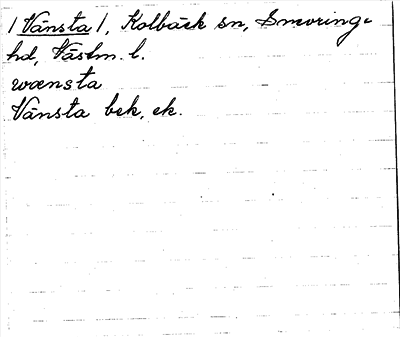 /Vänsta/, Kolbäck sn, Snevringe-
hd, Västm. l.
wænsta
Vänsta bek, ek.